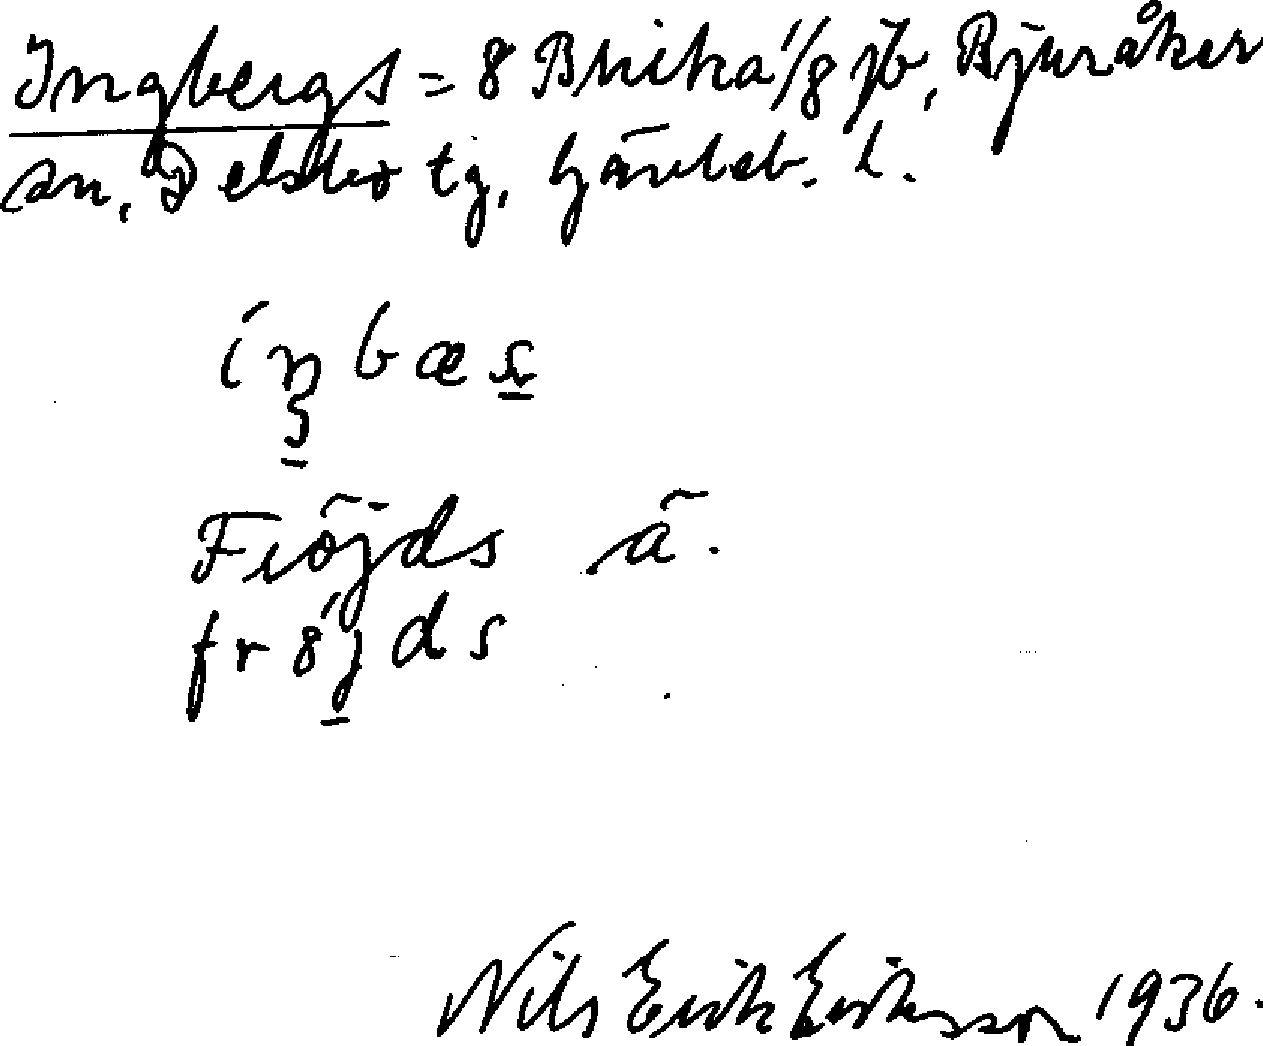 Ingbergs = 8 Bricka 1/8 jb, Bjuråker
sn, Delsbo tg, Gävleb. l.
Fröjds ä.
fr8jds
Nils Erik Eriksson 1936.